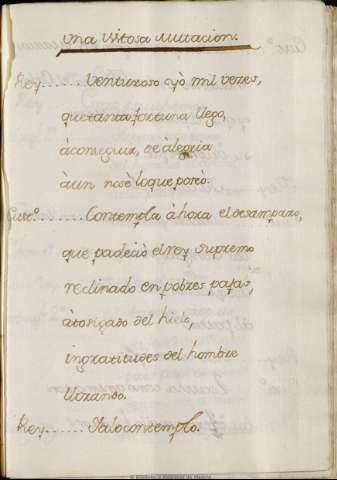 una Vistosa Mutacion.
Rey....... Venturoso yò mil vezes,
que tanta fortuna llego,
à conseguir, de àlegria
àun nosè loque poseò.
Cur.º....... Contempla àhora el desamparo,
que padeciò el rey supremo
reclinado en pobres pajas,
àtorigado del hielo,
ingratitudes del hombre
llorando.
Rey....... Yalo contemplo.